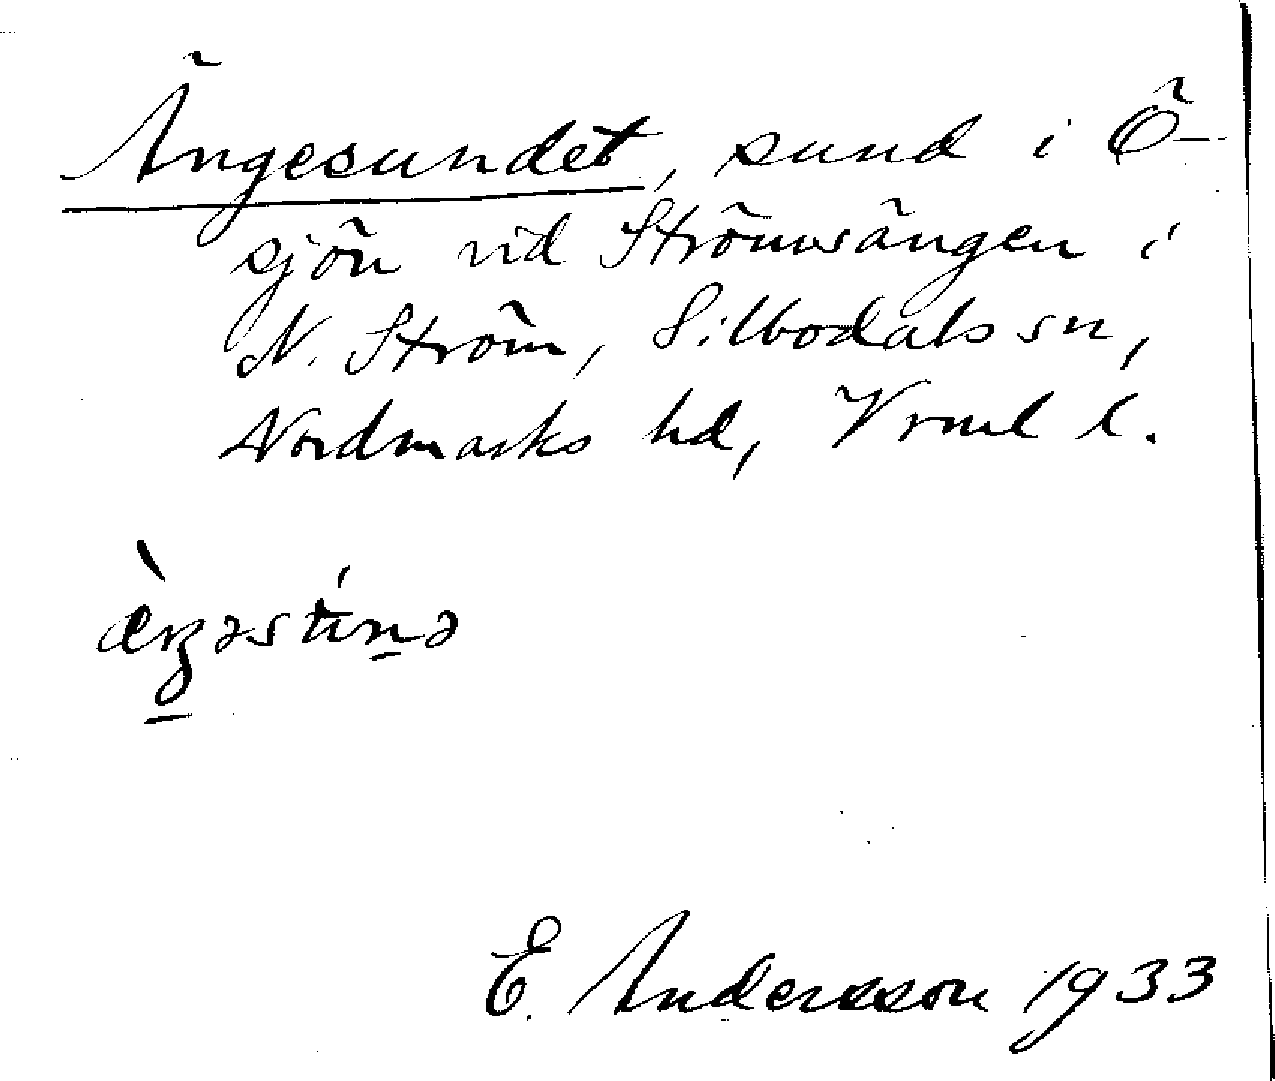 Ängesundet, sund i Ö-
sjön vid Strömsängen i
N. Ström, Silbodals sn,
Nordmarks hd, Vrml l.
E. Andersson 1933